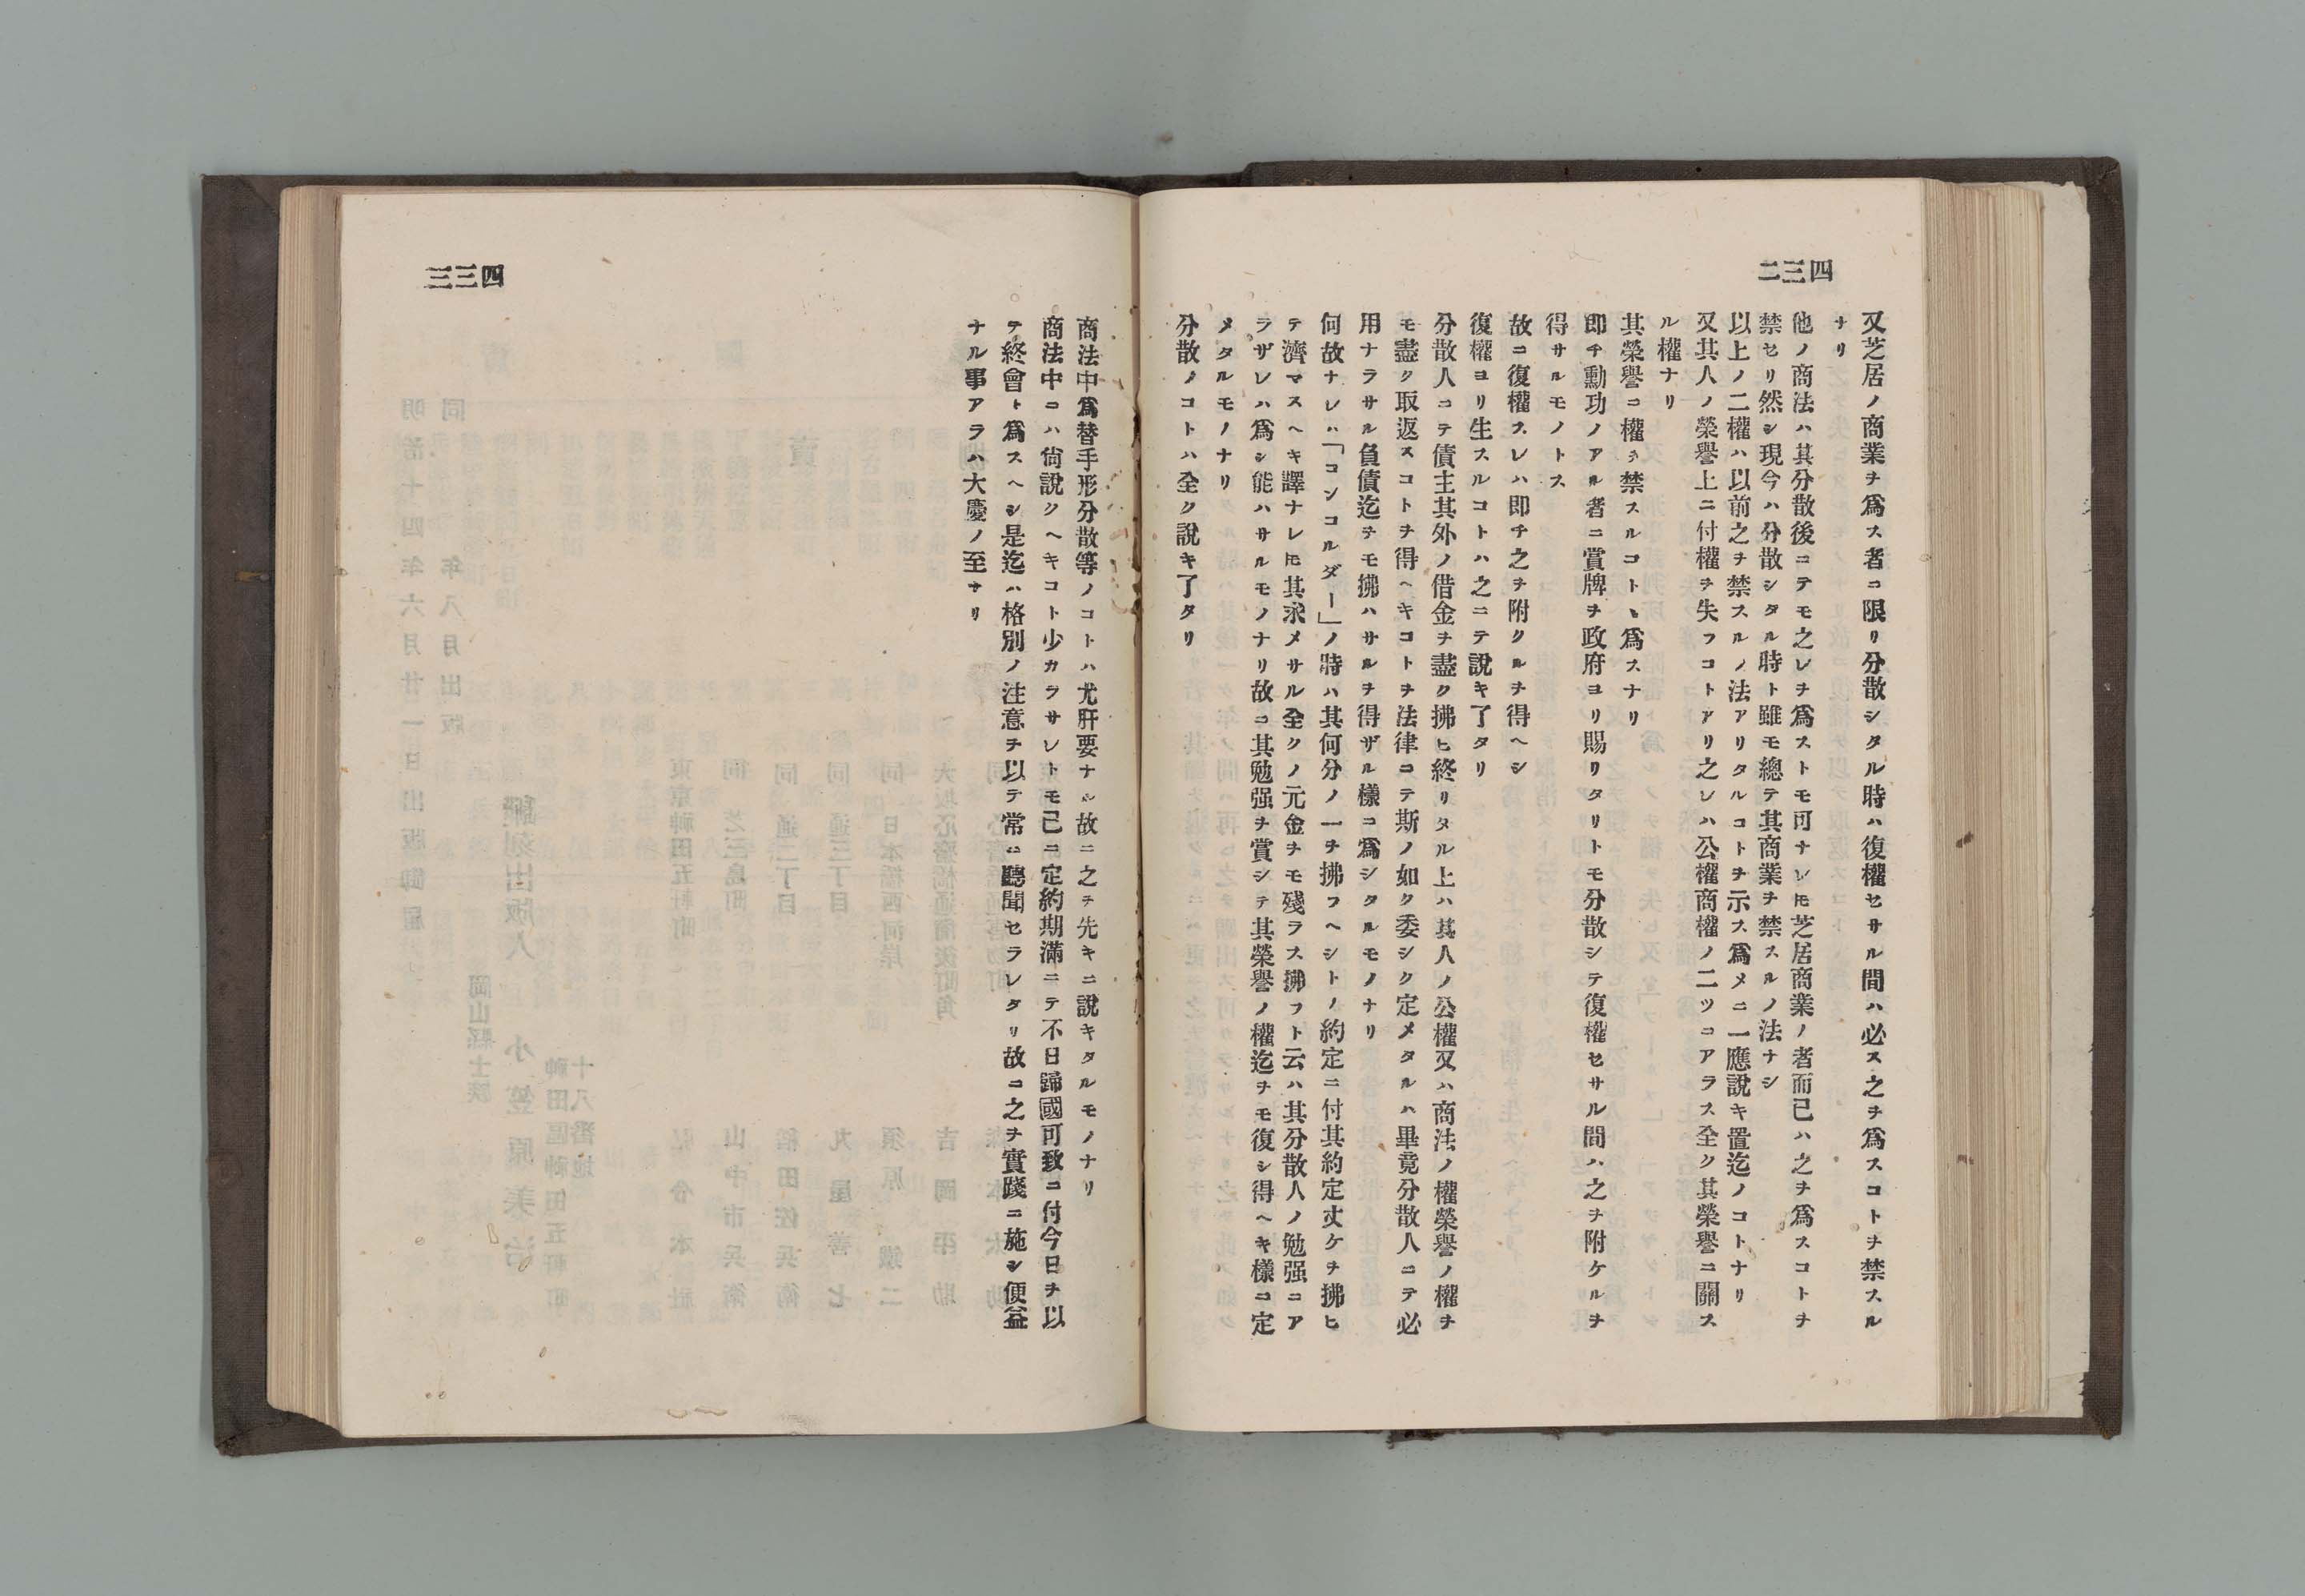 四三二
又芝居ノ商業ヲ爲ス者ニ限リ分散シタル時ハ復權セサル間ハ必ス之ヲ爲スコトヲ禁スル
ナリ
他ノ商法ハ其分散後ニテモ之レヲ爲ストモ可ナレ𪜈芝居商業ノ者而已ハ之ヲ爲スコトヲ
禁セリ然シ現今ハ分散シタル時ト雖モ總テ其商業ヲ禁スルノ法ナシ
以上ノ二權ハ以前之ヲ禁スルノ法アリタルコトヲ示ス爲メニ一應說キ置迄ノコトナリ
又其人ノ榮譽上ニ付權ヲ失フコトアリ之レハ公權商權ノ二ツニアラス全ク其榮譽ニ關ス
ル權ナリ
其榮譽ニ權ヲ禁スルコトヽ爲スナリ
即チ勳功ノアル者ニ賞牌ヲ政府ヨリ賜リタリトモ分散シテ復權セサル間ハ之ヲ附ケルヲ
得サルモノトス
故ニ復權スレハ即チ之ヲ附クルヲ得ヘシ
復權ヨリ生スルコトハ之ニテ說キ了タリ
分散人ニテ債主其外ノ借金ヲ盡ク拂ヒ終リタル上ハ其人ノ公權又ハ商法ノ權榮譽ノ權ヲ
モ盡ク取返スコトヲ得ヘキコトヲ法律ニテ斯ノ如ク委シク定メタルハ畢竟分散人ニテ必
用ナラサル負債迄ヲモ拂ハサルヲ得ザル樣ニ爲シタルモノナリ
何故ナレハ「コンコルダー」ノ時ハ其何分ノ一ヲ拂フヘシトノ約定ニ付其約定丈ケヲ拂ヒ
テ濟マスヘキ譯ナレ𪜈其求メサル全クノ元金ヲモ殘ラス拂フト云ハ其分散人ノ勉强ニア
ラザレハ爲シ能ハサルモノナリ故ニ其勉强ヲ賞シテ其榮譽ノ權迄ヲモ復シ得ヘキ樣ニ定
メタルモノナリ
分散ノコトハ全ク說キ了タリ
四三三
商法中爲替手形分散等ノコトハ尤肝要ナル故ニ之ヲ先キニ說キタルモノナリ
商法中ニハ尙說クヘキコト少カラサレトモ已ニ定約期滿ニテ不日歸國可致ニ付今日ヲ以
テ終會ト爲スヘシ是迄ハ格別ノ注意ヲ以テ常ニ聽聞セラレタリ故ニ之ヲ實踐ニ施シ便益
ナル事アラハ大慶ノ至ナリ